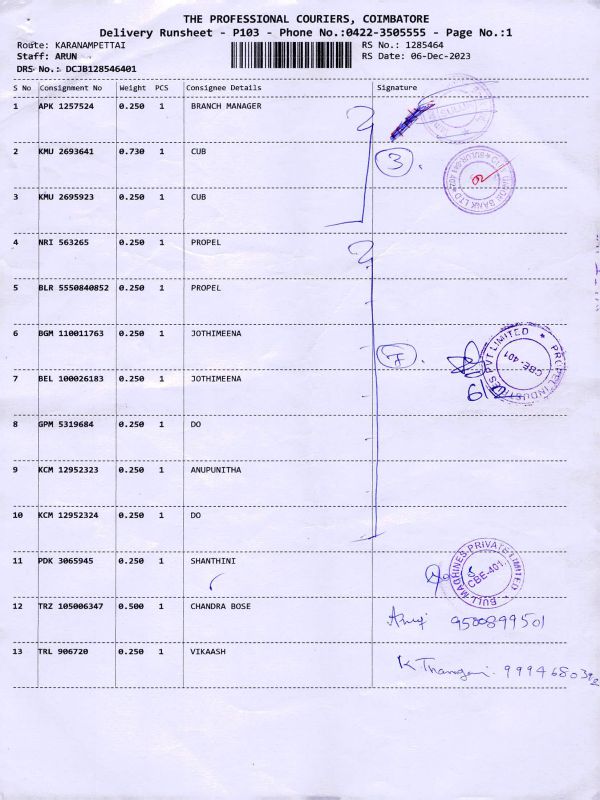 THE PROFESSIONAL COURIERS, COIMBATORE
Delivery Runsheet - P103 - Phone No.:0422-3505555 - Page No.:1
Route: KARANAMPETTAI
RS No.: 1285464
Staff: ARUN
RS Date: 06-Dec-2023
DRS No.: DCJB128546401
S No Consignment No Weight PCS Consignee Details Signature
1 APK 1257524 0.250 1 BRANCH MANAGER
2 KMU 2693641 0.730 1 CUB
3.
3 KMU 2695923 0.250 1 CUB
4 NRI 563265 0.250 1 PROPEL
5 BLR 5550840852 0.250 1 PROPEL
6 BGM 110011763 0.250 1 JOTHIMEENA
7.
PROPEL INDUSTRIES PVT LIMITED ★ CBE-401
7 BEL 100026183 0.250 1 JOTHIMEENA
8 GPM 5319684 0.250 1 DO
9 KCM 12952323 0.250 1 ANUPUNITHA
10 KCM 12952324 0.250 1 DO
11 PDK 3065945 0.250 1 SHANTHINI
BULL MACHINES PRIVATE LIMITED ★ CBE-401.
12 TRZ 105006347 0.500 1 CHANDRA BOSE
9500899501
13 TRL 906720 0.250 1 VIKAASH
K. Thangam. 9994680392